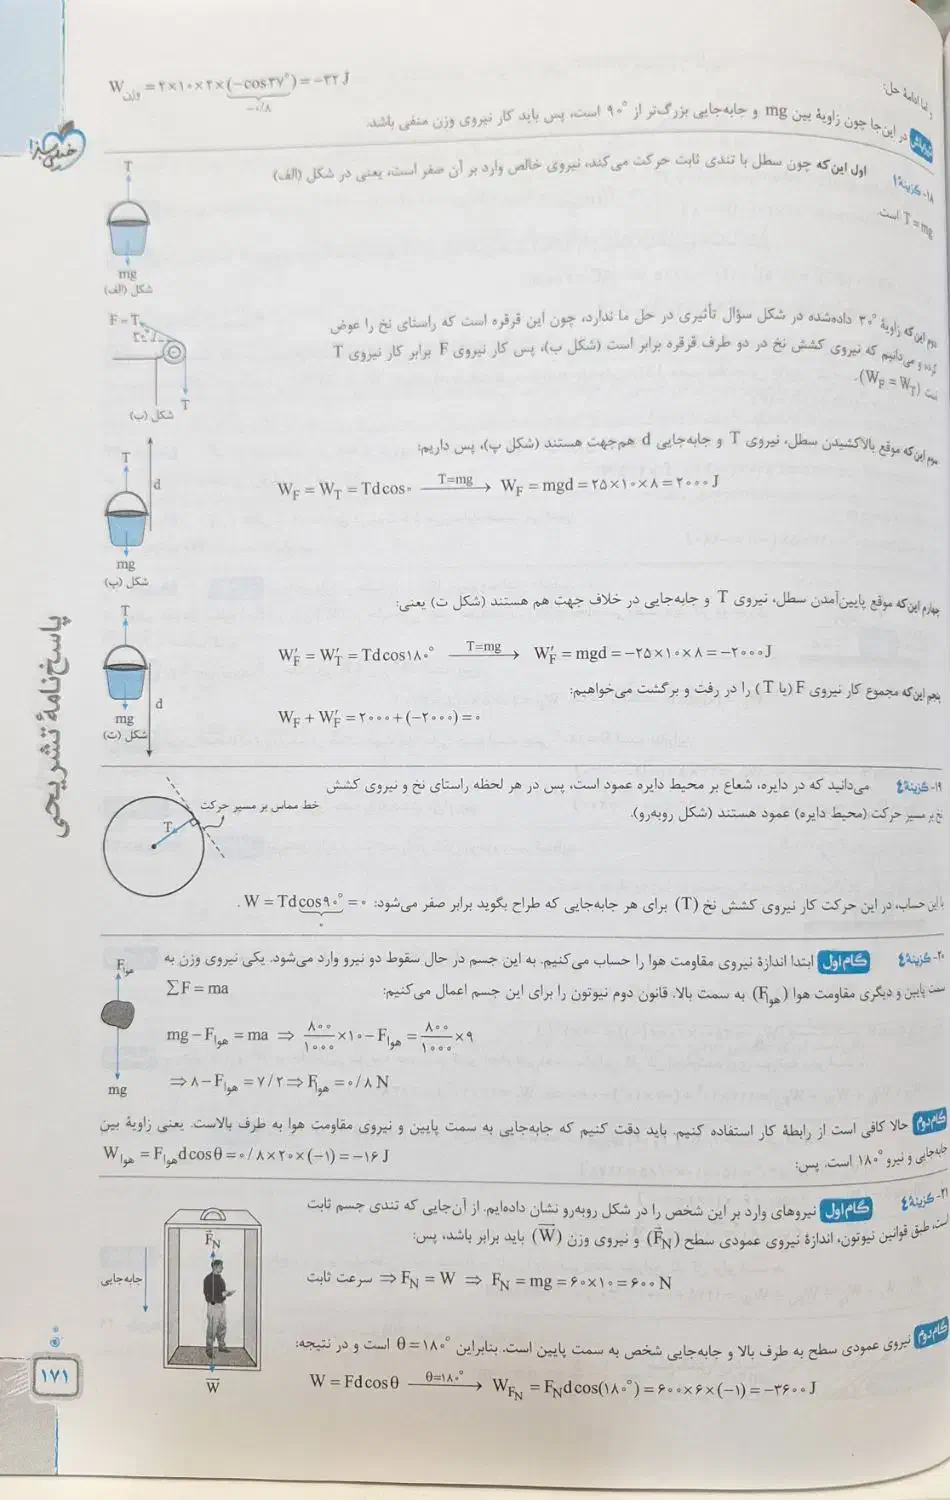 و اما ادامۀ حل:
W وزن = ۲×۱۰×۲×(−cos۳۷°) = −۳۲ J
−۰/۸
در این‌جا چون زاویۀ بین mg و جابه‌جایی بزرگ‌تر از ۹۰° است، پس باید کار نیروی وزن منفی باشد.
خیلی سبز
۱۸- گزینۀ ۱ اول این‌که چون سطل با تندی ثابت حرکت می‌کند، نیروی خالص وارد بر آن صفر است، یعنی در شکل (الف)
T = mg است.
T
mg
شکل (الف)
دوم این‌که زاویۀ ۳۰° داده‌شده در شکل سؤال تأثیری در حل ما ندارد، چون این قرقره است که راستای نخ را عوض
کرده و می‌دانیم که نیروی کشش نخ در دو طرف قرقره برابر است (شکل ب)، پس کار نیروی F برابر کار نیروی T
است (W_F = W_T).
F = T
T
شکل (ب)
سوم این‌که موقع بالاکشیدن سطل، نیروی T و جابه‌جایی d هم‌جهت هستند (شکل پ)، پس داریم:
W_F = W_T = Tdcos۰ T=mg → W_F = mgd = ۲۵×۱۰×۸ = ۲۰۰۰ J
T
d
mg
شکل (پ)
چهارم این‌که موقع پایین‌آمدن سطل، نیروی T و جابه‌جایی در خلاف جهت هم هستند (شکل ت) یعنی:
W′_F = W′_T = Tdcos۱۸۰° T=mg → W′_F = mgd = −۲۵×۱۰×۸ = −۲۰۰۰J
پنجم این‌که مجموع کار نیروی F (یا T) را در رفت و برگشت می‌خواهیم:
W_F + W′_F = ۲۰۰۰+(−۲۰۰۰) = ۰
T
d
mg
شکل (ت)
پاسخ‌نامۀ تشریحی
۱۹- گزینۀ ۴ می‌دانید که در دایره، شعاع بر محیط دایره عمود است، پس در هر لحظه راستای نخ و نیروی کشش
نخ بر مسیر حرکت (محیط دایره) عمود هستند (شکل روبه‌رو).
خط مماس بر مسیر حرکت
T
با این حساب، در این حرکت کار نیروی کشش نخ (T) برای هر جابه‌جایی که طراح بگوید برابر صفر می‌شود: W = Tdcos۹۰° = ۰ .
۰
۲۰- گزینۀ ۴ گام اول ابتدا اندازۀ نیروی مقاومت هوا را حساب می‌کنیم. به این جسم در حال سقوط دو نیرو وارد می‌شود. یکی نیروی وزن به
سمت پایین و دیگری مقاومت هوا (F هوا) به سمت بالا. قانون دوم نیوتون را برای این جسم اعمال می‌کنیم:
ΣF = ma
mg − F هوا = ma ⇒ ۸۰۰/۱۰۰۰ ×۱۰ − F هوا = ۸۰۰/۱۰۰۰ ×۹
⇒ ۸ − F هوا = ۷/۲ ⇒ F هوا = ۰/۸ N
F هوا
mg
گام دوم حالا کافی است از رابطۀ کار استفاده کنیم. باید دقت کنیم که جابه‌جایی به سمت پایین و نیروی مقاومت هوا به طرف بالاست. یعنی زاویۀ بین
جابه‌جایی و نیرو ۱۸۰° است. پس:
W هوا = F هوا dcosθ = ۰/۸×۲۰×(−۱) = −۱۶ J
۲۱- گزینۀ ۴ گام اول نیروهای وارد بر این شخص را در شکل روبه‌رو نشان داده‌ایم. از آن‌جایی که تندی جسم ثابت
است، طبق قوانین نیوتون، اندازۀ نیروی عمودی سطح (F_N) و نیروی وزن (W) باید برابر باشد، پس:
سرعت ثابت ⇒ F_N = W ⇒ F_N = mg = ۶۰×۱۰ = ۶۰۰ N
F_N
جابه‌جایی
W
گام دوم نیروی عمودی سطح به طرف بالا و جابه‌جایی شخص به سمت پایین است. بنابراین θ = ۱۸۰° است و در نتیجه:
W = Fdcosθ θ=۱۸۰° → W_{F_N} = F_N dcos(۱۸۰°) = ۶۰۰×۶×(−۱) = −۳۶۰۰ J
۱۷۱